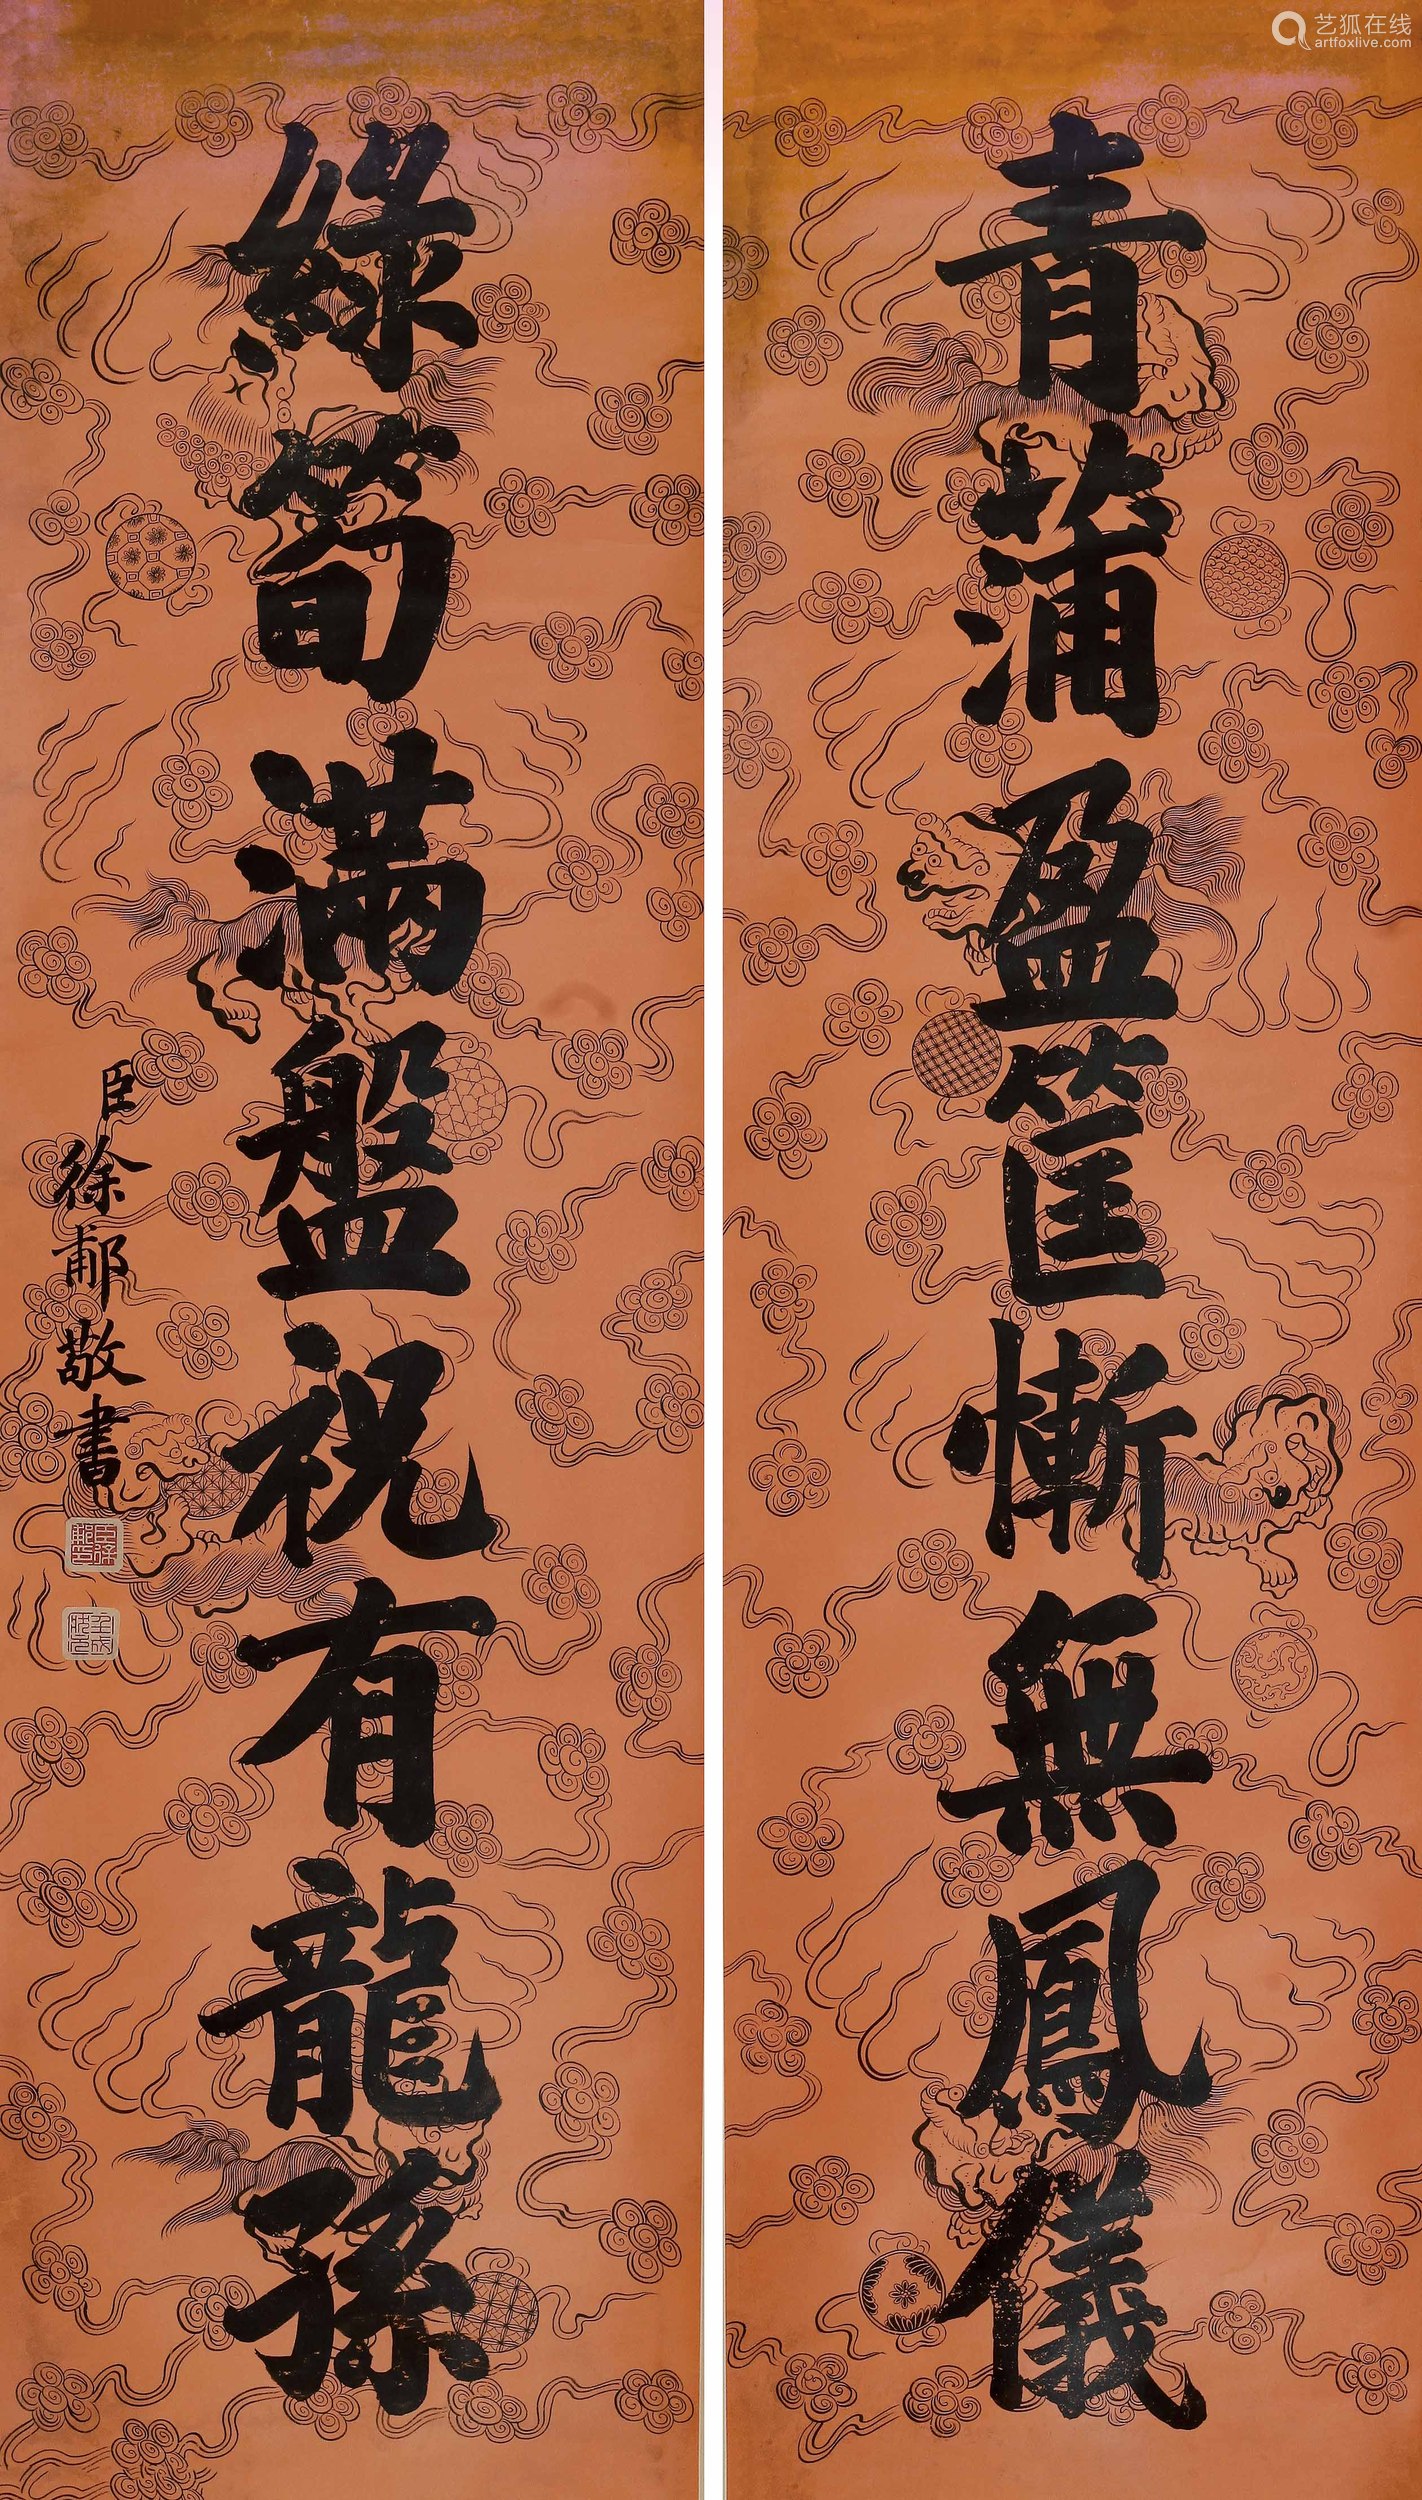 青蒲盈筐慚無鳳儀
綠筍滿盤祝有龍孫
臣徐郙敬書
艺狐在线
artfoxlive.com